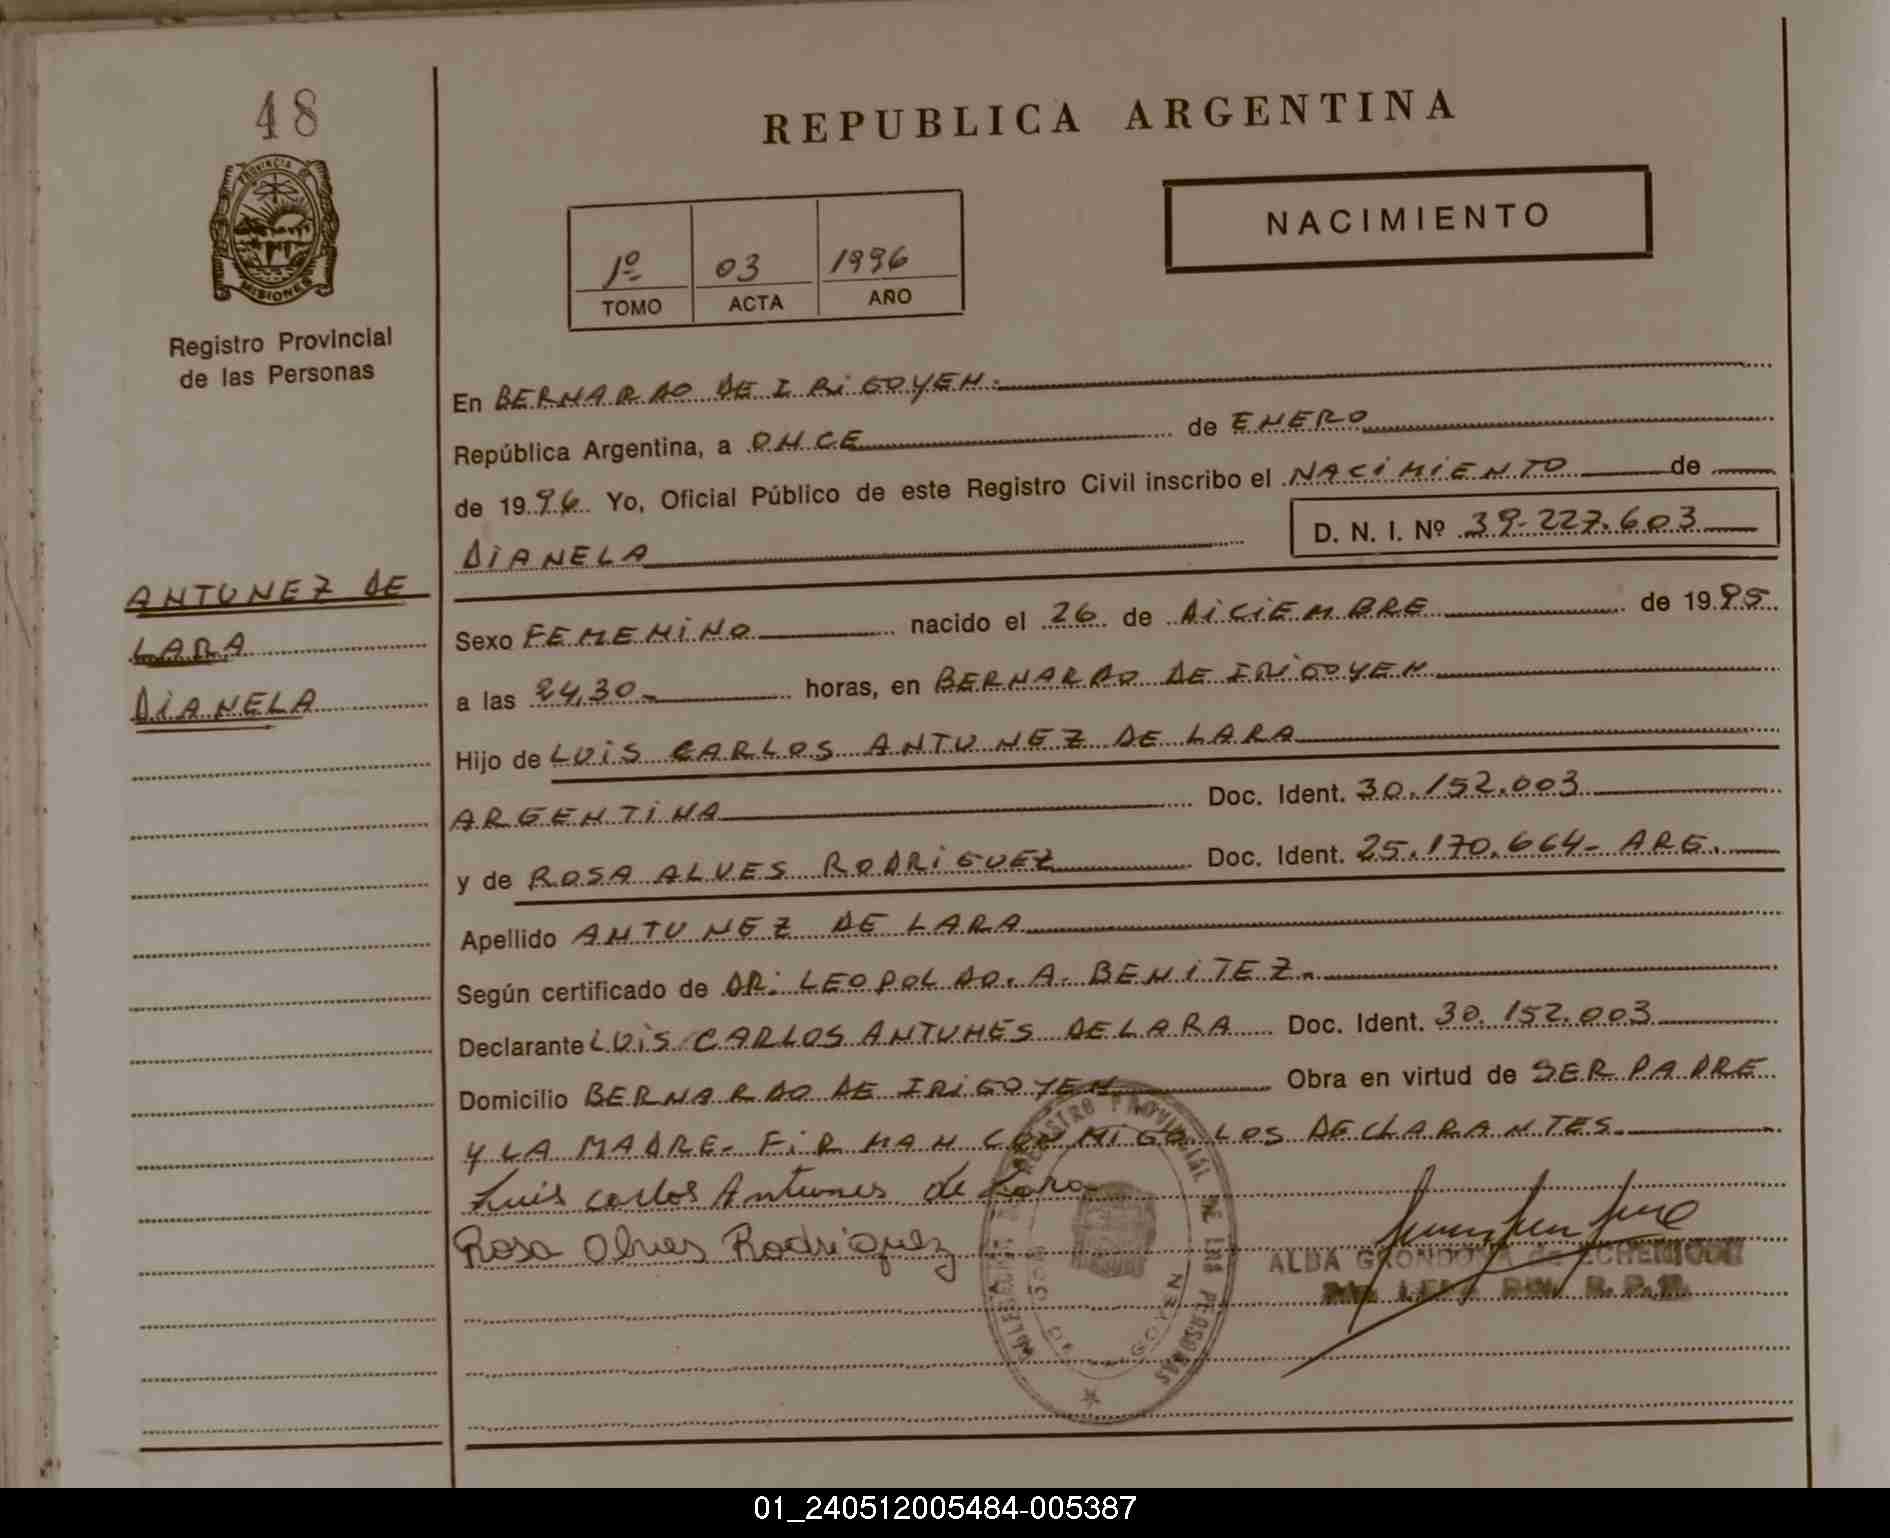 48
REPUBLICA ARGENTINA
PROVINCIA DE
MISIONES
Registro Provincial
de las Personas
1º 03 1996
TOMO ACTA AÑO
NACIMIENTO
En BERNARDO DE IRIGOYEN.
República Argentina, a ONCE de ENERO
de 1996 Yo, Oficial Público de este Registro Civil inscribo el NACIMIENTO de
DIANELA D. N. I. Nº 39-227.603
ANTUNEZ DE
LARA
DIANELA
Sexo FEMENINO nacido el 26 de DICIEMBRE de 1995
a las 24,30- horas, en BERNARDO DE IRIGOYEN
Hijo de LUIS CARLOS ANTUNEZ DE LARA
ARGENTINA Doc. Ident. 30.152.003
y de ROSA ALVES RODRIGUEZ Doc. Ident. 25.170.664- ARG.
Apellido ANTUNEZ DE LARA
Según certificado de DR: LEOPOLDO. A. BENITEZ.
Declarante LUIS CARLOS ANTUNES DE LARA Doc. Ident. 30.152.003
Domicilio BERNARDO DE IRIGOYEN Obra en virtud de SER PADRE
Y LA MADRE- FIRMAN CONMIGO LOS DECLARANTES
Luis carlos Antunes de Lara
Rosa Alves Rodriguez
REGISTRO PROVINCIAL DE LAS PERSONAS
ALBA GRONDONA de ECHENIQUE
01_240512005484-005387